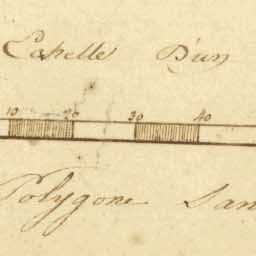 Echelle D'un
10 20 30 40
Polygone San